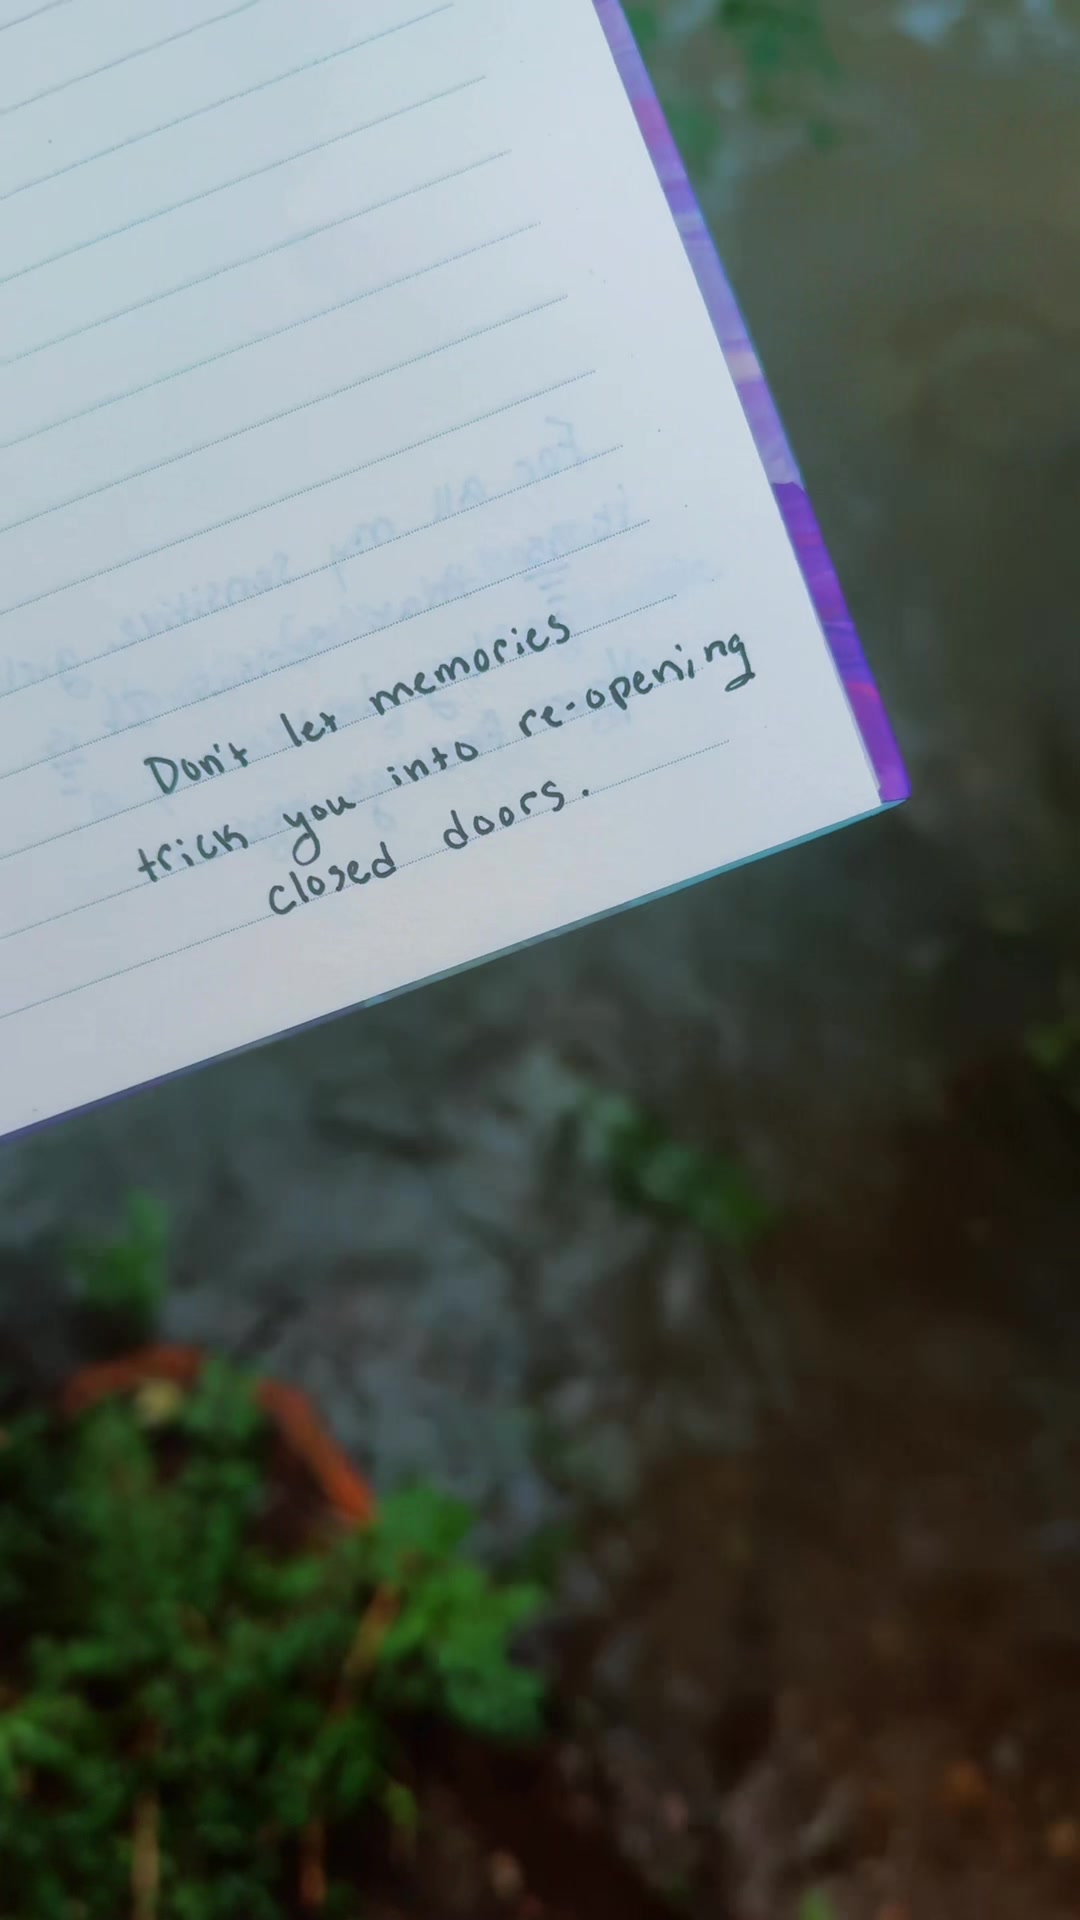 Don't let memories
trick you into re-opening
closed doors.